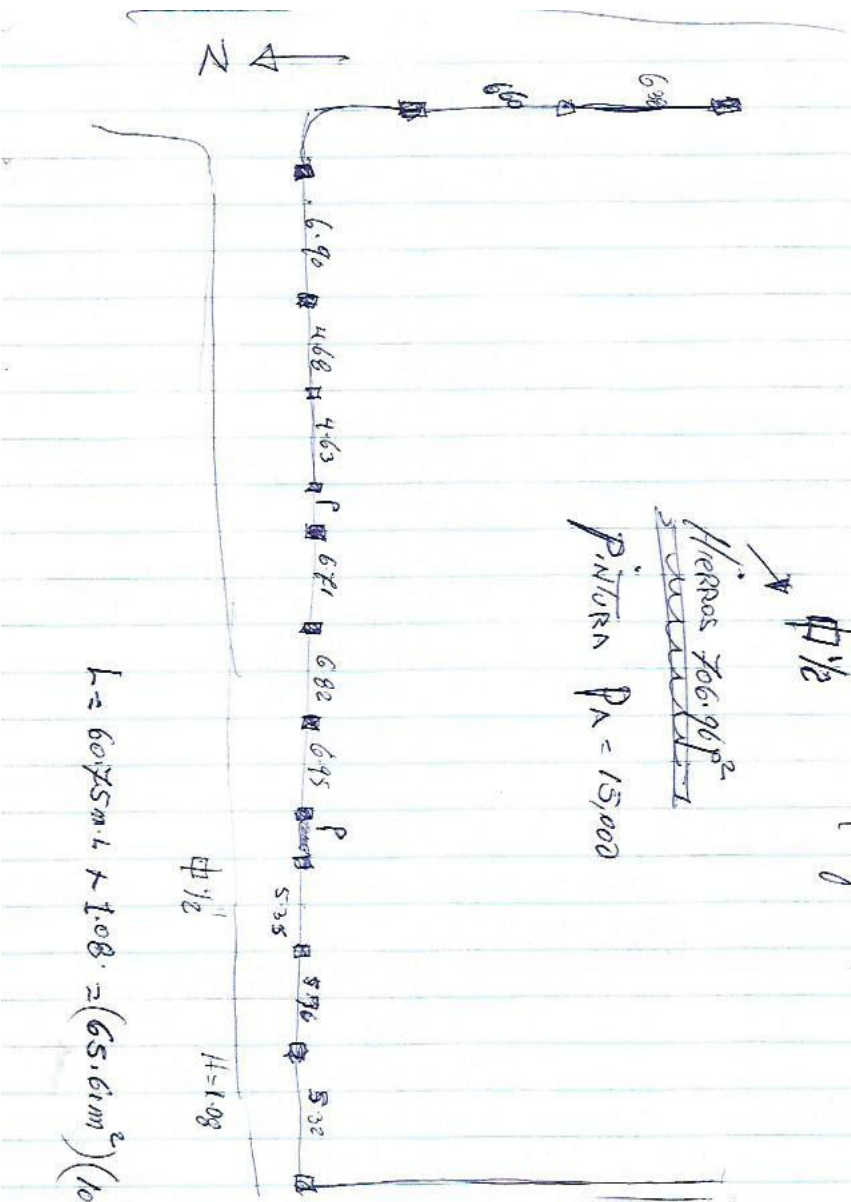 N
6.60
6.90
4.68
4.63
P
6.71
6.82
6.95
P
5.35
5.76
5.32
1/2
Hierros 706.96 p²
Pintura PA = 15,000
1/2"
H=1.08
L= 60.75 m.L x 1.08 = (65.61 m²)(10